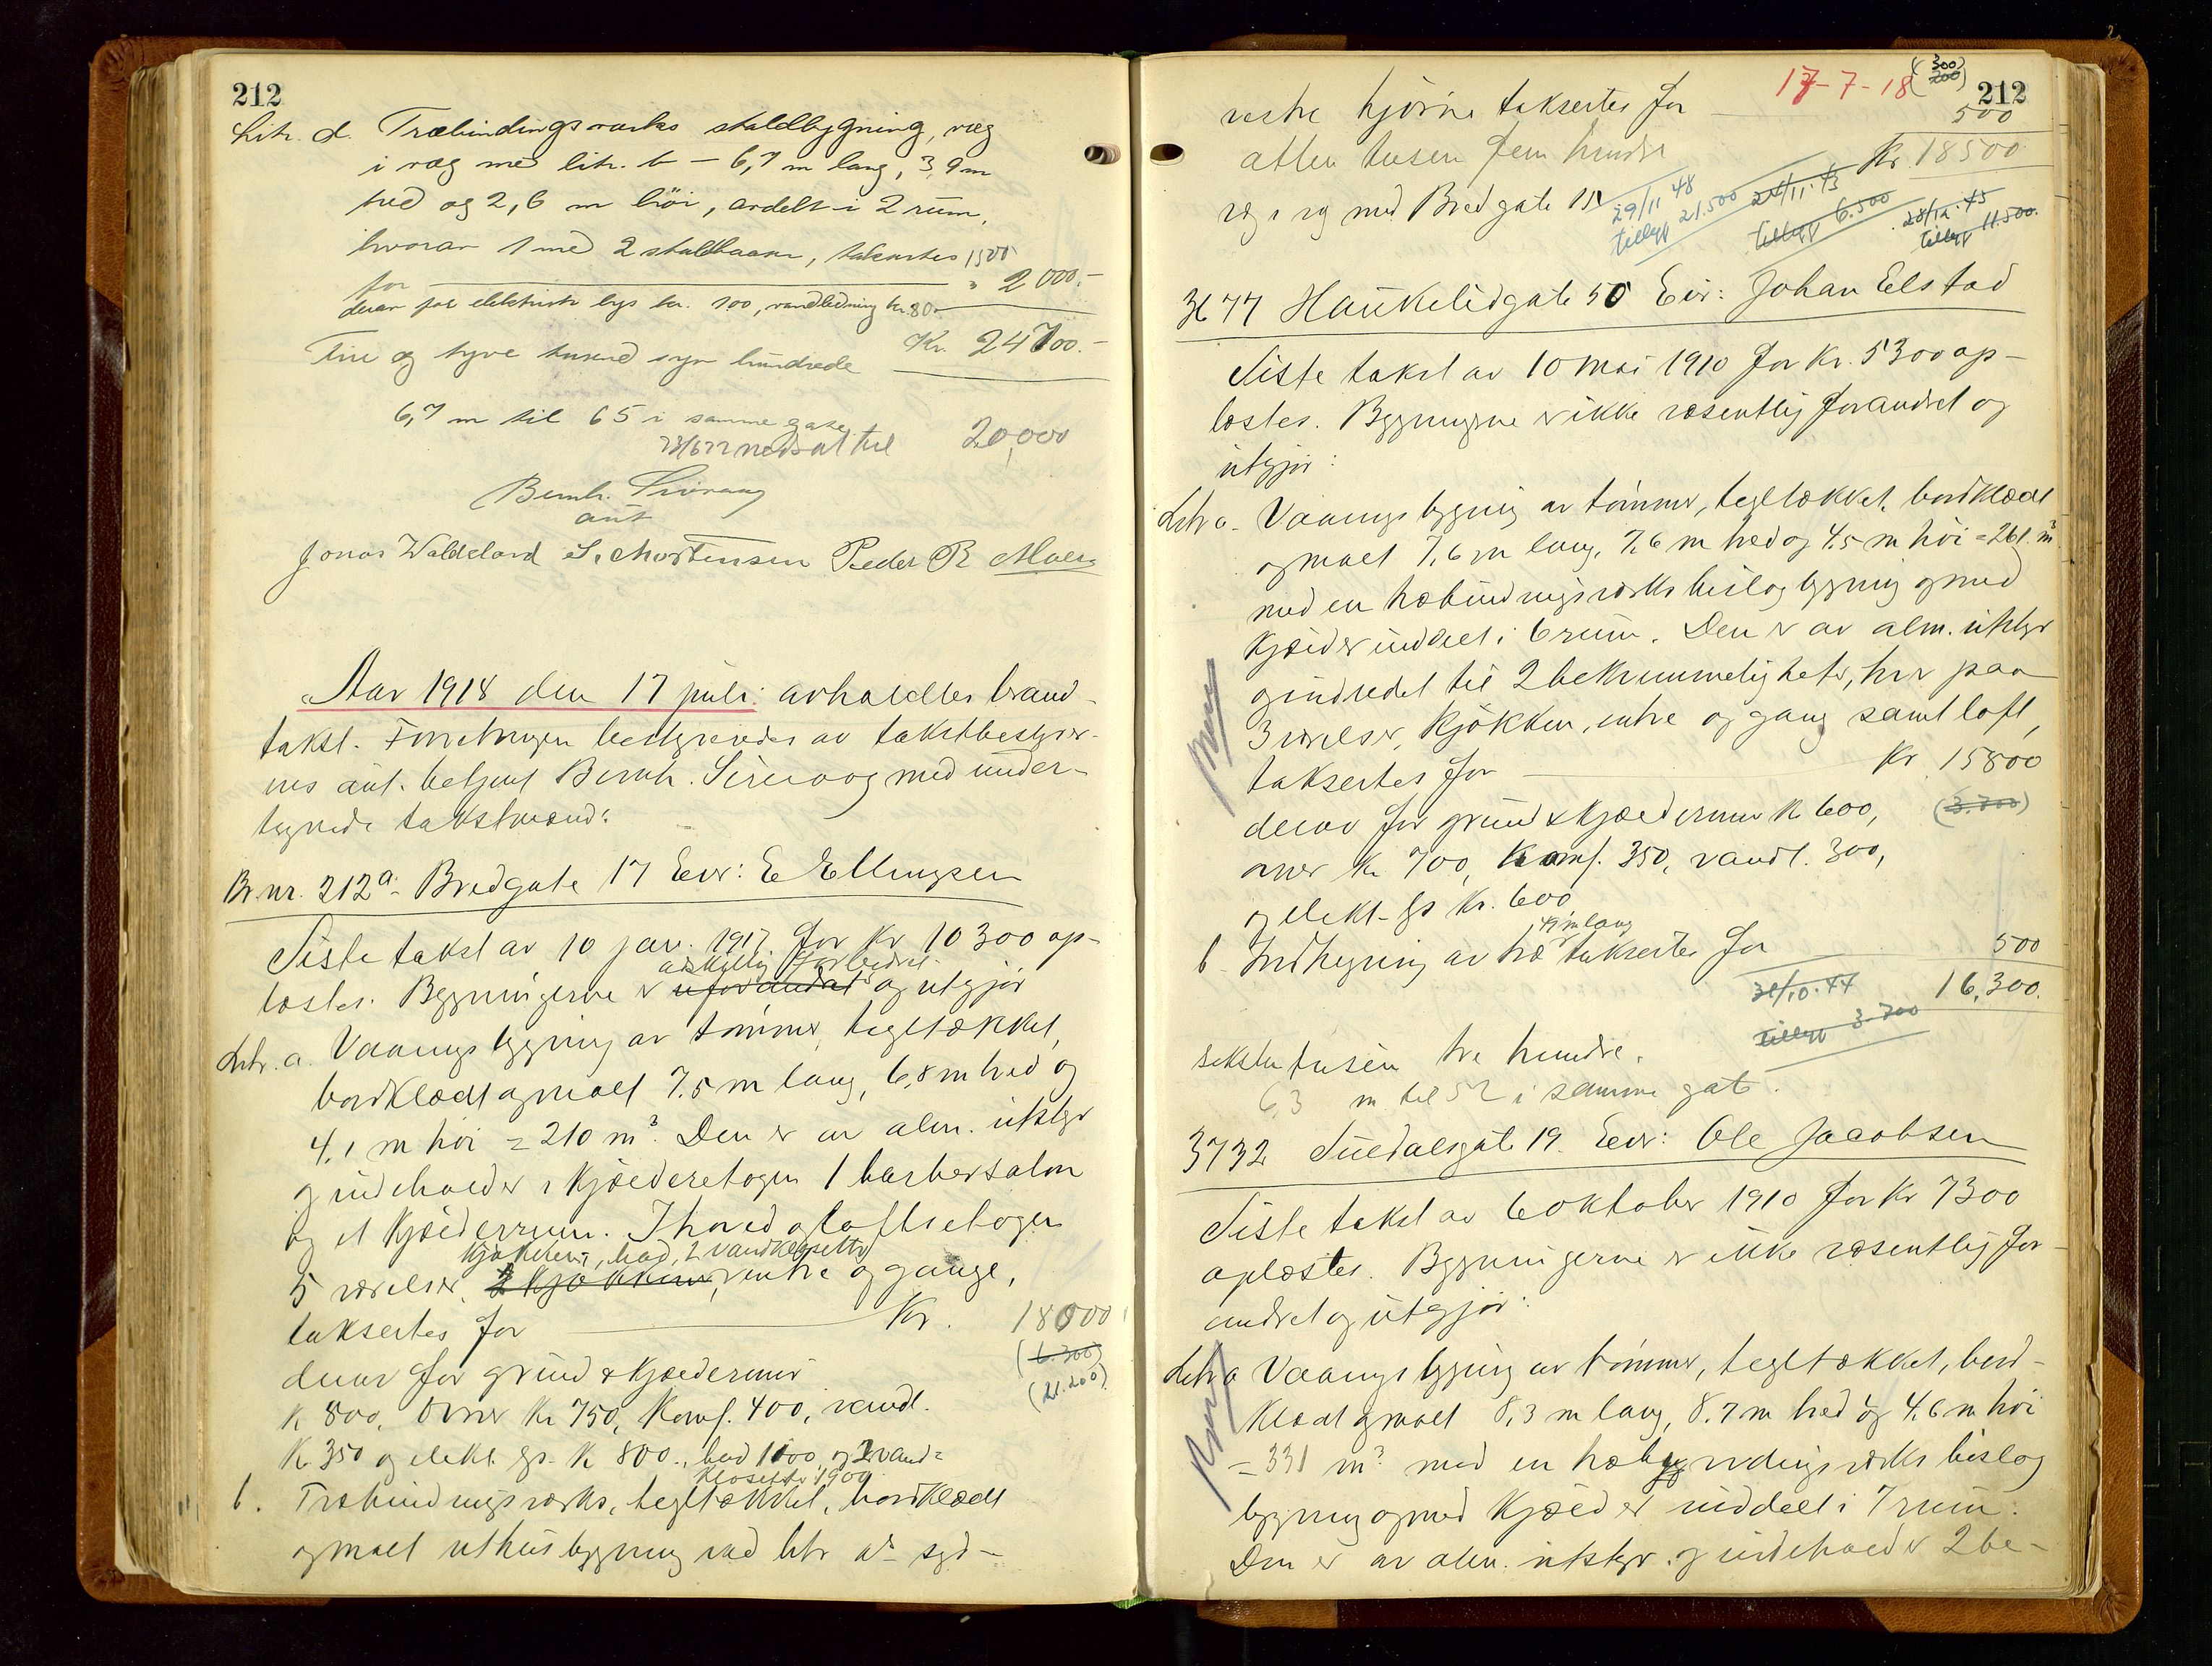 212
Litr. d. Træbindingsverks staldbygning, væg
i væg med litr. b – 6,7 m lang, 3,9 m
bred og 2,6 m höi, avdelt i 2 rum,
hvorav 1 med 2 staldbaase, taksertes 1500
for 2 000.-
derav for elektrisk lys kr. 100, vandledning kr. 80.-
Kr. 24700.-
Fire og tyve tusend syv hundrede
6,7 m til 65 i samme gate
23/6 22 nedsat til 20,000
Bernh.
aut
Jonas Waldeland S. Mortensen Peder R. Moen
Aar 1918 den 17 juli avholdtes brand-
takst. Forretningen bestyredes av takstbestyrer-
ens aut. betjent Bernh. med under-
tegnede takstmænd:
Br.nr. 212a. Bredgate 17 Eier: E Ellingsen
Siste takst av 10 jan. 1917 for kr 10300 op-
adskillig forbedret
læstes. Bygningerne er uforandret og utgjör
Litr. a. Vaaningsbygning av tömmer, tegltækket,
bordklædt og malt 7.5 m lang, 6,8 m bred og
4,1 m höi = 210 m³. Den er av alm. utstyr
og indeholder i kjælderetagen 1 barbersalon
og et kjælderrum. I hoved og loftsetagen
kjökken, bad, 2 vandklosetter
5 værelser, 2 kjökkener, entre og gange,
taksertes for Kr. 18000
(6.300)
derav for grund & kjældermur (21.200)
k 800, ovner Kr 750, Komf. 400, vandl.
Kr 350 og elekt. lys. K 800., bad 1000 og 2 vand=
klosetter 1900
b. Træbindingsverks, tegltækket, bordklædt
og malt uthusbygning ved litr a's syd-
17-7-18 (300) (200) 212
vestre hjörne taksertes for 500
atten tusen fem hundre Kr. 18500
væg i væg med Bredgate 15
29/11 48 tillegg 21.500
24/11.43 tillegg 6.500
28/12.45 tillegg 11.500.
3677 Haukelidgate 50 Eier: Johan Elstad
Siste takst av 10 mai 1910 for Kr. 5300 op-
læstes. Bygningerne er ikke væsentlig forandret og
utgjör:
Litr a. Vaaningsbygning av tömmer, tegltækket, bordklædt
og malt 7,6 m lang, 7,6 m bred og 4,5 m höi = 261 m³
med en træbindingsverks bislagbygning og med
kjælder inddelt i 6 rum. Den er av alm. utstyr
og indredet til 2 bekvemmeligheter, hver paa
3 værelser, kjökken, entre og gang samt loft,
taksertes for Kr. 15800
derav for grund & kjældermur K 600, (3.700)
ovner Kr 700, Komf. 350, vandl. 300,
og elekt. lys Kr. 600
49 m lang
b. Indhegning av træ taksertes for 500
31/10.44 16,300.
tillegg 3 700
seksten tusen tre hundre.
6,3 m til 52 i samme gate.
3732 Suldalsgate 19. Eier: Ole Jacobsen
Siste takst av 6 oktober 1910 for Kr 7300
oplæstes. Bygningerne er ikke væsentlig for-
andret og utgjör:
Litr a Vaaningsbygning av tömmer, tegltækket, bord-
klædt og malt 8,3 m lang, 8.7 m bred og 4,6 m höi
= 331 m³ med en træbygndingsverks bislag
bygning og med kjælder inddelt i 7 rum.
Den er av alm. utstyr og indeholder 2 be-